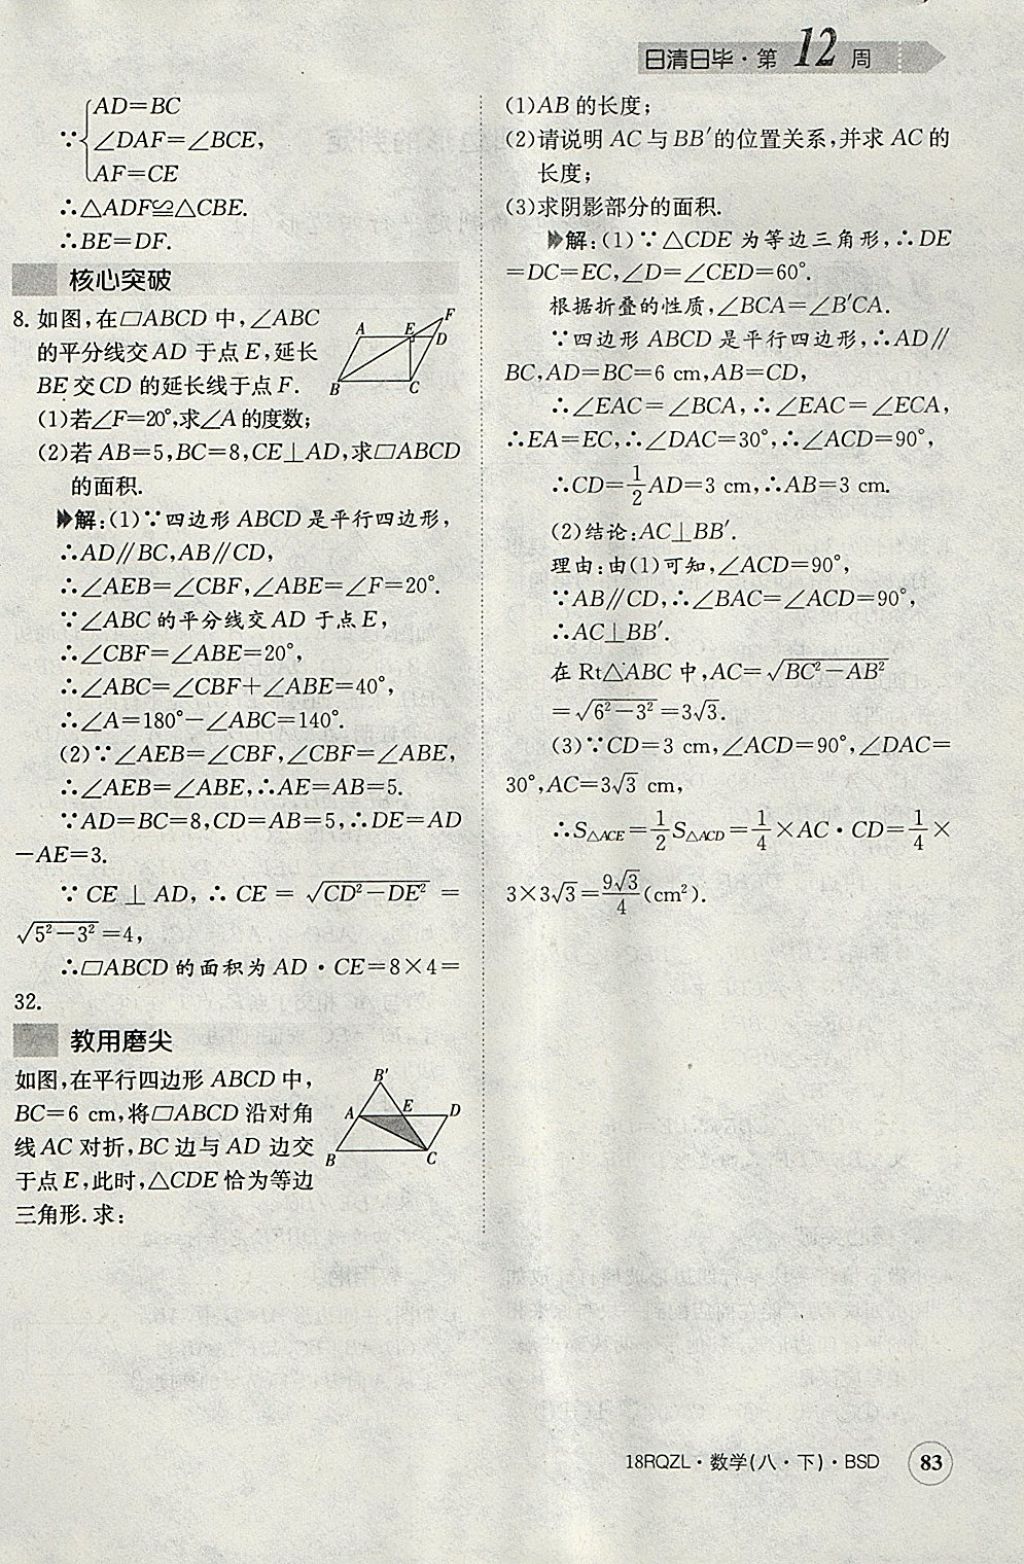 日清日毕·第12周
∵{AD=BC
∠DAF=∠BCE,
AF=CE
∴△ADF≌△CBE.
∴BE=DF.
核心突破
8. 如图,在▱ABCD 中,∠ABC
的平分线交 AD 于点 E,延长
BE 交 CD 的延长线于点 F.
(1)若∠F=20°,求∠A 的度数;
(2)若 AB=5,BC=8,CE⊥AD,求▱ABCD
的面积.
A E F D B C
解:(1)∵四边形 ABCD 是平行四边形,
∴AD∥BC,AB∥CD,
∴∠AEB=∠CBF,∠ABE=∠F=20°.
∵∠ABC 的平分线交 AD 于点 E,
∴∠CBF=∠ABE=20°,
∴∠ABC=∠CBF+∠ABE=40°,
∴∠A=180°-∠ABC=140°.
(2)∵∠AEB=∠CBF,∠CBF=∠ABE,
∴∠AEB=∠ABE,∴AE=AB=5.
∵AD=BC=8,CD=AB=5,∴DE=AD
-AE=3.
∵CE⊥AD,∴CE=√(CD²-DE²)=
√(5²-3²)=4,
∴▱ABCD 的面积为 AD·CE=8×4=
32.
教用磨尖
如图,在平行四边形 ABCD 中,
BC=6 cm,将▱ABCD 沿对角
线 AC 对折,BC 边与 AD 边交
于点 E,此时,△CDE 恰为等边
三角形.求:
B′ A E D B C
(1)AB 的长度;
(2)请说明 AC 与 BB′的位置关系,并求 AC 的
长度;
(3)求阴影部分的面积.
解:(1)∵△CDE 为等边三角形,∴DE
=DC=EC,∠D=∠CED=60°.
根据折叠的性质,∠BCA=∠B′CA.
∵四边形 ABCD 是平行四边形,∴AD∥
BC,AD=BC=6 cm,AB=CD,
∴∠EAC=∠BCA,∴∠EAC=∠ECA,
∴EA=EC,∴∠DAC=30°,∴∠ACD=90°,
∴CD=1/2AD=3 cm,∴AB=3 cm.
(2)结论:AC⊥BB′.
理由:由(1)可知,∠ACD=90°,
∵AB∥CD,∴∠BAC=∠ACD=90°,
∴AC⊥BB′.
在 Rt△ABC 中,AC=√(BC²-AB²)
=√(6²-3²)=3√3.
(3)∵CD=3 cm,∠ACD=90°,∠DAC=
30°,AC=3√3 cm,
∴S△ACE=1/2S△ACD=1/4×AC·CD=1/4×
3×3√3=9√3/4(cm²).
18RQZL·数学(八·下)·BSD 83